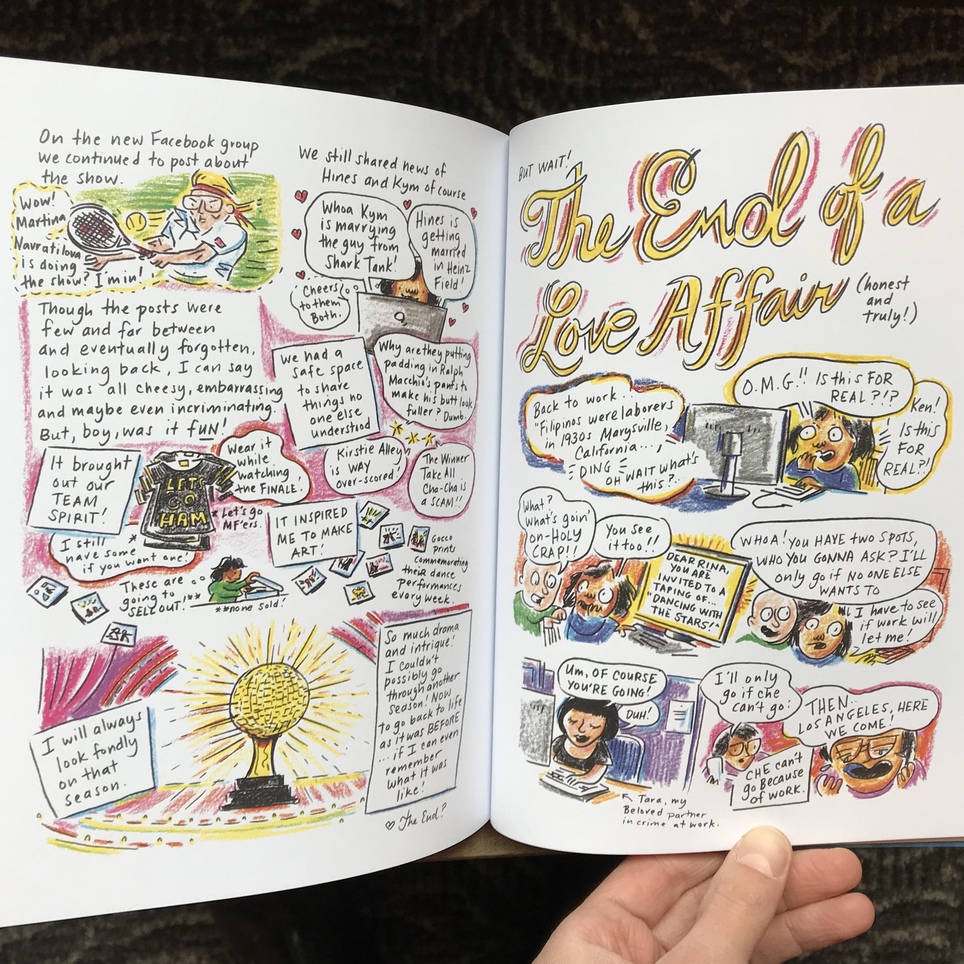 On the new Facebook group
we continued to post about
the show.
Wow!
Martina
Navratilova
is doing
the show? I'm in!
We still shared news of
Hines and Kym of course
Whoa Kym
is marrying
the guy from
Shark Tank!
Hines is
getting
married
in Heinz
Field!
Cheers
to them
Both.
Though the posts were
few and far between
and eventually forgotten,
looking back, I can say
it was all cheesy, embarrassing
and maybe even incriminating.
But, boy, was it fun!
We had a
safe space
to share
things no
one else
understood
Why are they putting
padding in Ralph
Macchio's pants to
make his butt look
fuller? Dumb.
Kirstie Alley
is way
over-scored!
The Winner
Take All
Cha-Cha is
a SCAM!!
It brought
out our
TEAM
SPIRIT!
LETS
GO
HAM
Wear it
while
watching
the FINALE.
*Let's go
MF'ers.
I still
have some
if you want one!
IT INSPIRED
ME TO MAKE
ART!
These are
going to
SELL OUT!**
**none sold!
Gocco
prints
commemorating
their dance
performances
every week.
I will always
look fondly
on that
season.
So much drama
and intrigue!
I couldn't
possibly go
through another
season! Now
to go back to life
as it was BEFORE
...if I can even
remember
what it was
like!
♡ The End?
BUT WAIT!
The End of a
Love Affair
(honest
and
truly!)
Back to work...
"Filipinos were laborers
in 1930s Marysville,
California...,
DING
OH WAIT what's
this?..
O.M.G!! Is this FOR
REAL?!?
Ken!
Is this
FOR
REAL?!
What?
What's goin'
on-HOLY
CRAP!!
You see
it too!!
DEAR RINA,
YOU ARE
INVITED TO A
TAPING OF...
"DANCING WITH
THE STARS!"
WHOA! YOU HAVE TWO SPOTS,
WHO YOU GONNA ASK? I'LL
only go if NO ONE ELSE
WANTS TO
I have to see
if work will
let me!
Um, OF COURSE
YOU'RE GOING!
DUH!
↖ Tara, my
Beloved partner
in crime at work.
I'll only
go if Che
can't go!
CHE can't
go Because
of work.
THEN..
LOS ANGELES, HERE
WE COME!